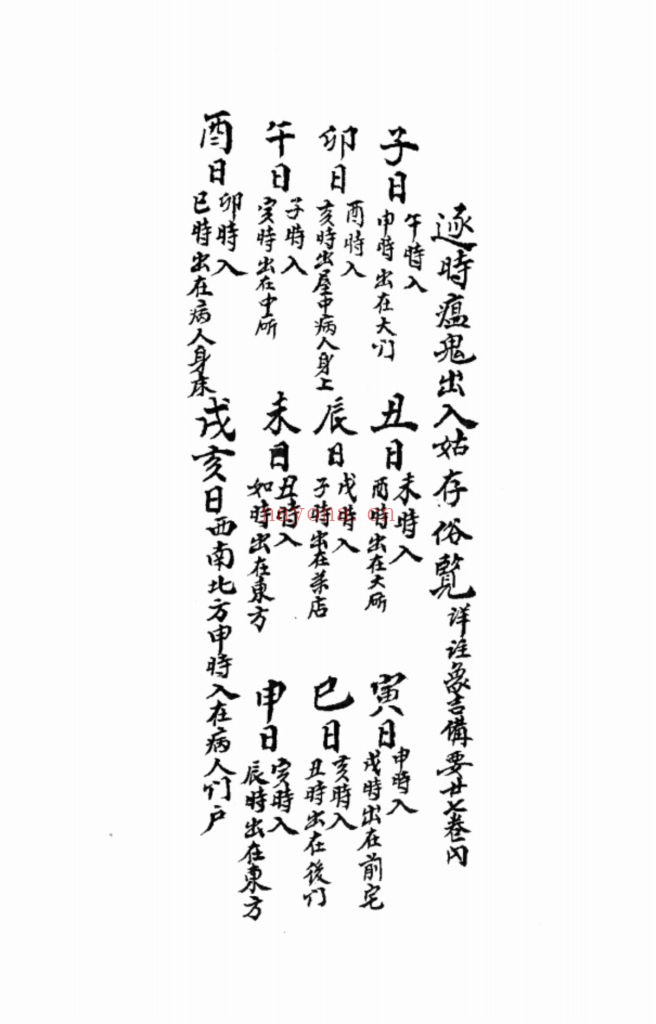 逐時瘟鬼出入姑存俗覽 詳註象吉備要廿七卷內
子日 午時入 申時出在大门
丑日 未時入 酉時出在大所
寅日 申時入 戌時出在前宅
卯日 酉時入 亥時出屋中病人身上
辰日 戌時入 子時出在茶店
巳日 亥時入 丑時出在後门
午日 子時入 寅時出在中所
未日 丑時入 如時出在東方
申日 寅時入 辰時出在東方
酉日 卯時入 巳時出在病人身床
戌亥日西南北方申時入在病人门户